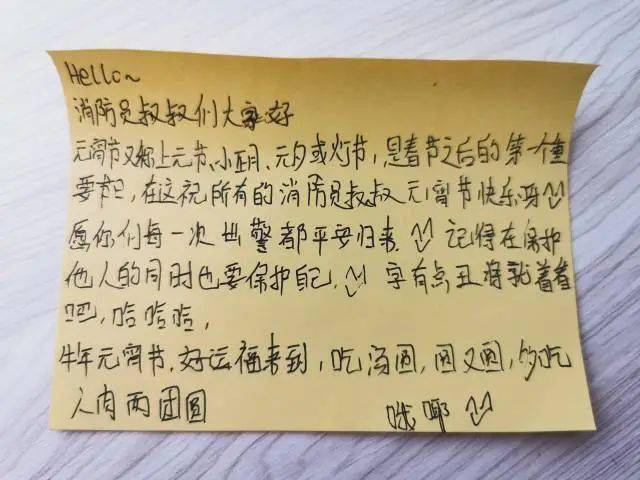 Hello~
消防员叔叔们大家好
元宵节又称上元节、小正月、元夕或灯节,是春节之后的第一个重
要节日,在这祝所有的消防员叔叔元宵节快乐呀
愿你们每一次出警都平安归来 记得在保护
他人的同时也要保护自己, 字有点丑将就着看
吧,哈哈哈,
牛年元宵节,好运福来到,吃汤圆,圆又圆,
人肉两团圆 哦耶